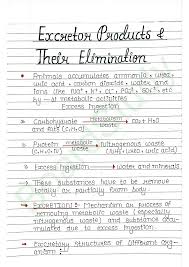 Excretory Products &
Their Elimination
• Animals accumulates ammonia, urea,
uric acid, carbon dioxide, water and
ions like Na⁺, K⁺, Cl⁻, PO₄³⁻, SO₄²⁻ etc
By → metabolic activities
Excess Ingestion
Carbohydrate Metabolism CO₂ + H₂O
and fats (C,H,O)
Protein metabolic waste Nitrogenous waste
(C,H,O,N) (NH₃, urea and uric acid)
Excess Ingestion → water and minerals
These substances have to be removed
totally or partially from body
EXCRETION: Mechanism or process of
removing metabolic waste (especially
nitrogenous waste) and substance accumulated
due to excess ingestion
Excretory structures of different organism